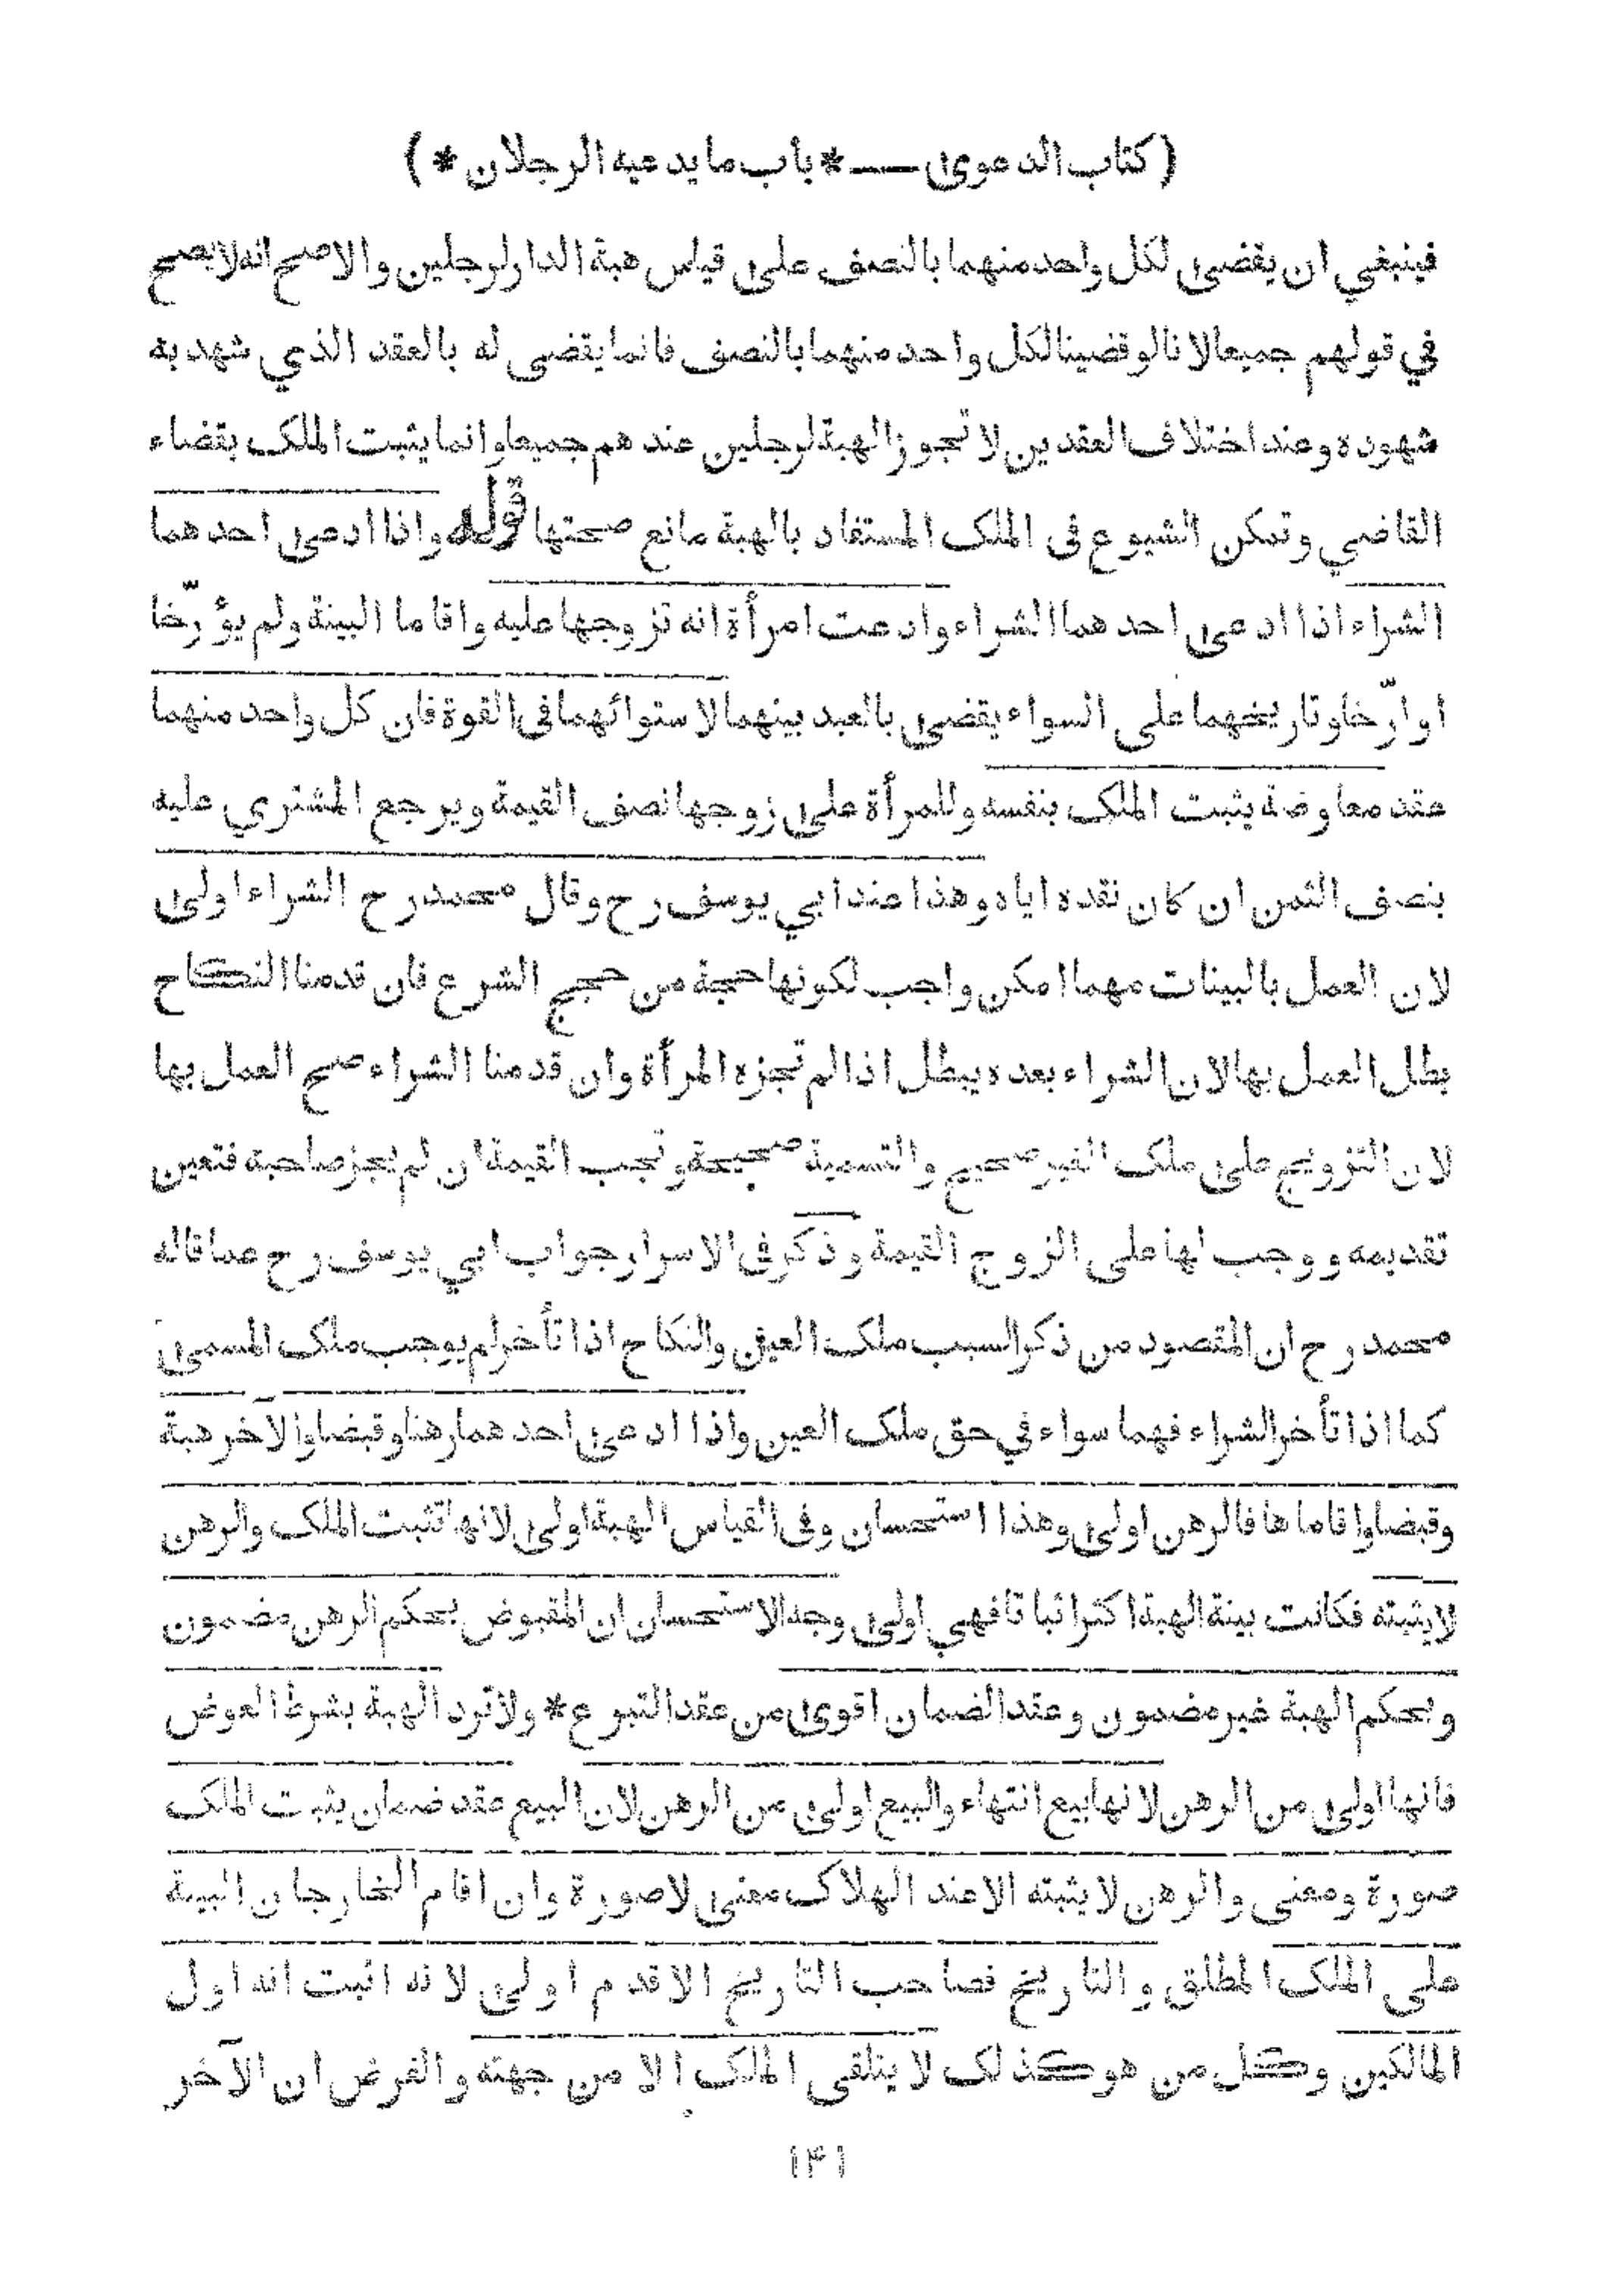 ( كتاب الدعوى — * باب ما يدعيه الرجلان * )
فينبغي ان يقضى لكل واحد منهما بالنصف على قياس هبة الدار لرجلين والاصح انه لا يصح
في قولهم جميعا لانا لو قضينا لكل واحد منهما بالنصف فانما يقضى له بالعقد الذي شهد به
شهوده وعند اختلاف العقدين لا تجوز الهبة لرجلين عندهم جميعا وانما يثبت الملك بقضاء
القاضي وتمكن الشيوع في الملك المستفاد بالهبة مانع صحتها قوله واذا ادعى احدهما
الشراء اذا ادعى احدهما الشراء وادعت امرأة انه تزوجها عليه واقاما البينة ولم يؤرّخا
او ارّخا وتاريخهما على السواء يقضى بالعبد بينهما لاستوائهما في القوة فان كل واحد منهما
عقد معاوضة يثبت الملك بنفسه وللمرأة على زوجها نصف القيمة ويرجع المشتري عليه
بنصف الثمن ان كان نقده اياه وهذا عند ابي يوسف رح وقال محمد رح الشراء اولى
لان العمل بالبينات مهما امكن واجب لكونها حجة من حجج الشرع فان قدمنا النكاح
بطل العمل بها لان الشراء بعده يبطل اذا لم تجزه المرأة وان قدمنا الشراء صح العمل بها
لان التزويج على ملك الغير صحيح والتسمية صحيحة وتجب القيمة ان لم يجز صاحبه فتعين
تقديمه ووجب لها على الزوج القيمة وذكر في الاسرار جواب ابي يوسف رح عما قاله
محمد رح ان المقصود من ذكر السبب ملك العين والنكاح اذا تأخر لم يوجب ملك المسمى
كما اذا تأخر الشراء فهما سواء في حق ملك العين واذا ادعى احدهما رهنا وقبضا والآخر هبة
وقبضا واقاماها فالرهن اولى وهذا استحسان وفي القياس الهبة اولى لانها تثبت الملك والرهن
لا يثبته فكانت بينة الهبة اكثر اثباتا فهي اولى وجه الاستحسان ان المقبوض بحكم الرهن مضمون
وبحكم الهبة غير مضمون وعقد الضمان اقوى من عقد التبرع * ولا ترد الهبة بشرط العوض
فانها اولى من الرهن لانها بيع انتهاء والبيع اولى من الرهن لان البيع عقد ضمان يثبت الملك
صورة ومعنى والرهن لا يثبته الا عند الهلاك معنى لا صورة وان اقام الخارجان البينة
على الملك المطلق والتاريخ فصاحب التاريخ الاقدم اولى لانه اثبت انه اول
المالكين وكل من هو كذلك لا يتلقى الملك الا من جهته والفرض ان الآخر
۱۴۱